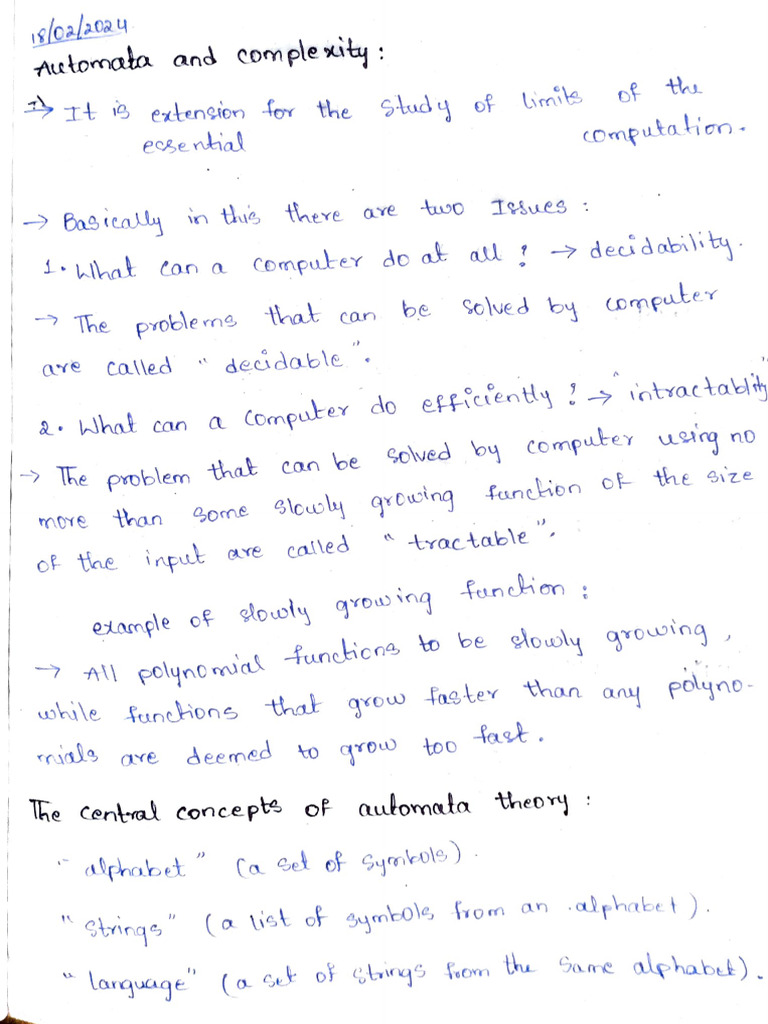 18/02/2024
Automata and complexity :
→ It is extension for the study of limits of the
ecsential computation.
→ Basically in this there are two Issues :
1. What can a computer do at all ? → decidability.
→ The problems that can be solved by computer
are called "decidable".
2. What can a computer do efficiently ? → "intractablity"
→ The problem that can be solved by computer using no
more than some slowly growing function of the size
of the input are called "tractable".
example of slowly growing function :
→ All polynomial functions to be slowly growing,
while functions that grow faster than any polyno-
mials are deemed to grow too fast.
The central concepts of automata theory :
"alphabet" (a set of symbols).
"strings" (a list of symbols from an alphabet).
"language" (a set of strings from the same alphabet).